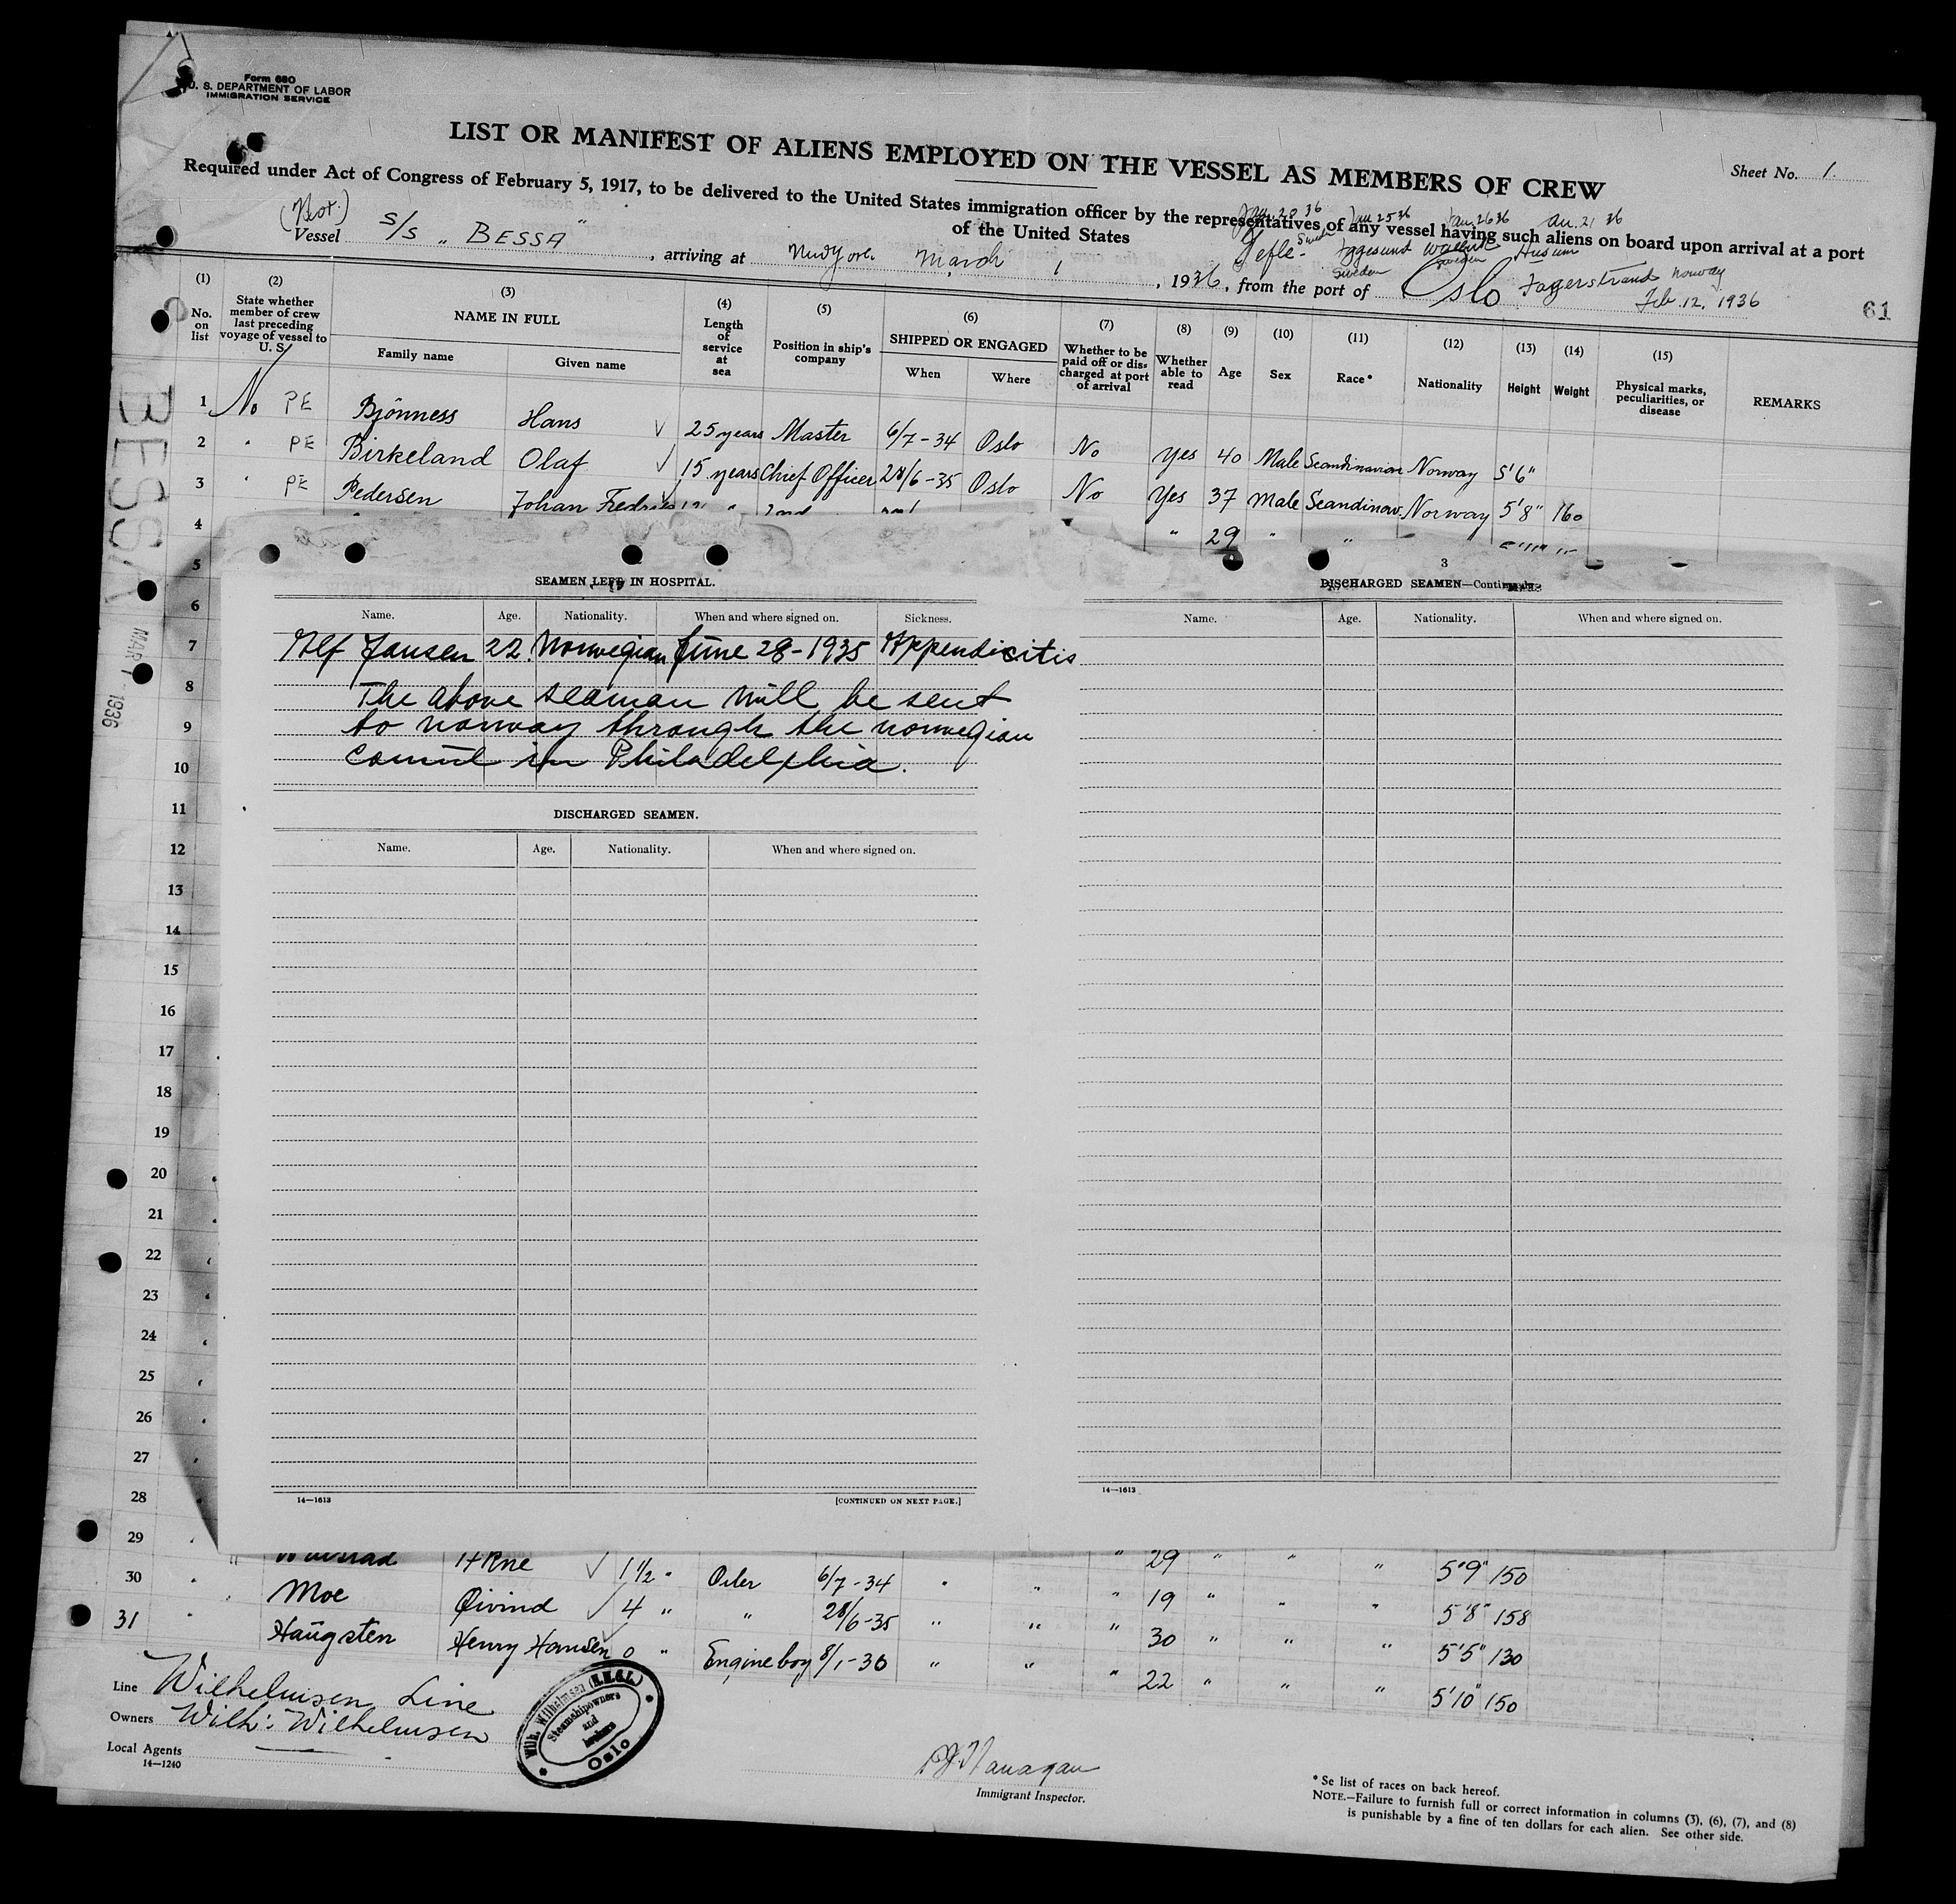 Form 680
U. S. DEPARTMENT OF LABOR
IMMIGRATION SERVICE
LIST OR MANIFEST OF ALIENS EMPLOYED ON THE VESSEL AS MEMBERS OF CREW
Sheet No. 1.
Required under Act of Congress of February 5, 1917, to be delivered to the United States immigration officer by the representatives of any vessel having such aliens on board upon arrival at a port
of the United States
(Nor.)
Jan 20 36 Jan 25 36 Jan. 26 36 an. 21 36
Gefle - Sweden Iggesund Sweden Husum
Vessel S/S „ BESSA " , arriving at New York. March 1 , 1936, from the port of Oslo Fagerstrand Norway
Feb. 12, 1936
61
BESSA
MAR 1 1936
(1) (2) (3) (4) (5) (6) (7) (8) (9) (10) (11) (12) (13) (14) (15)
No. on list
State whether member of crew last preceding voyage of vessel to U. S.
NAME IN FULL
Family name Given name
Length of service at sea
Position in ship's company
SHIPPED OR ENGAGED
When Where
Whether to be paid off or discharged at port of arrival
Whether able to read
Age Sex Race* Nationality Height Weight
Physical marks, peculiarities, or disease
REMARKS
1 No PE Bjönness Hans 25 years Master 6/7-34 Oslo No Yes 40 Male Scandinavian Norway 5'6"
2 " PE Birkeland Olaf 15 years Chief Officer 28/6-35 Oslo No Yes 37 Male Scandinav. Norway 5'8" 160
3 " PE Pedersen Johan Fredrik " 2nd " 29 " "
4
5
6
7
8
9
10
11
12
13
14
15
16
17
18
19
20
21
22
23
24
25
26
27
28
SEAMEN LEFT IN HOSPITAL.
Name. Age. Nationality. When and where signed on. Sickness.
Alf Jansen 22. Norwegian June 28-1935 Appendicitis
The above seaman will be sent
to norway through the norwegian
consul in Philadelphia.
DISCHARGED SEAMEN.
Name. Age. Nationality. When and where signed on.
14—1613
[CONTINUED ON NEXT PAGE.]
3
DISCHARGED SEAMEN—Continued.
Name. Age. Nationality. When and where signed on.
14—1613
29 Arne 1 1/2 " Oiler 6/7-34 " " " 29 " " " 5'9" 150
30 Moe Öivind 4 " " 28/6-35 " " " 19 " " " 5'8" 158
31 Haugsten Henry Hansen 0 " Engine boy 8/1-36 " " " 30 " " " 5'5" 130
" 22 " " " 5'10" 150
Line Wilhelmsen Line
Owners Wilh: Wilhelmsen
Local Agents
14—1240
Wilh. Wilhelmsen
Steamshipowners
and
brokers
Oslo
Immigrant Inspector.
* Se list of races on back hereof.
NOTE.—Failure to furnish full or correct information in columns (3), (6), (7), and (8)
is punishable by a fine of ten dollars for each alien. See other side.